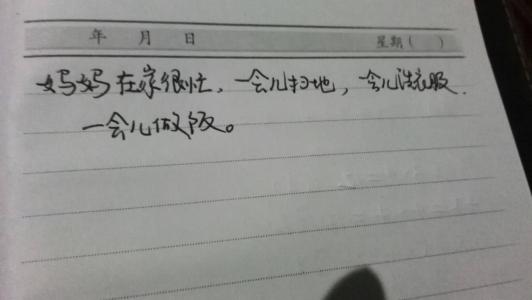 年 月 日 星期( )
妈妈在家很忙，一会儿扫地，会儿洗衣服.
一会儿做饭。